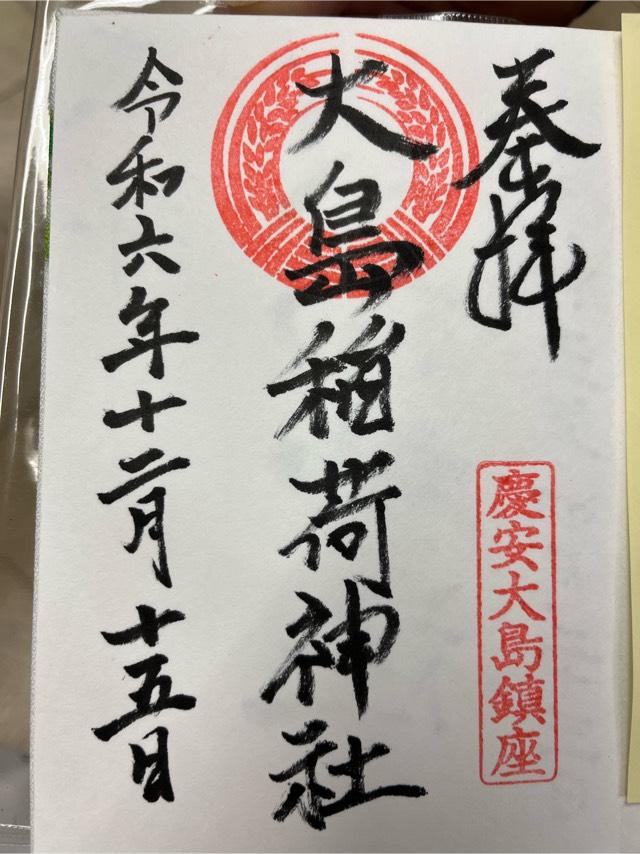 奉拝
慶安大島鎮座
大島稲荷神社
令和六年十二月十五日